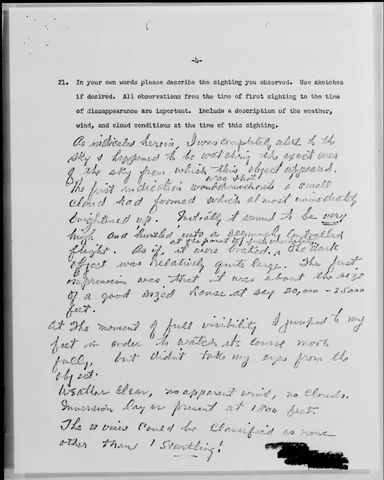 -4-
21. In your own words please describe the sighting you observed. Use sketches
if desired. All observations from the time of first sighting to the time
of disappearance are important. Include a description of the weather,
wind, and cloud conditions at the time of this sighting.
As indicated herein, I was completely alert to the
sky & happened to be watching the exact area
of the sky from which this object appeared.
The first indication was tho a small
cloud had formed which almost immediately
brightened up. Initially it seemed to be very
high and hurtled into a seemingly controlled
at the point of
flight. As if it were braked. The
object was relatively quite large. The first
impression was that it was about the size
of a good sized house at say 20,000 - 25000
feet.
At the moment of full visibility I jumped to my
feet in order to watch its course more
fully, but didn't take my eyes from the
object.
Weather clear, no apparent wind, no clouds.
Inversion layer present at 1800 feet.
The view could be classified as none
other than "startling!